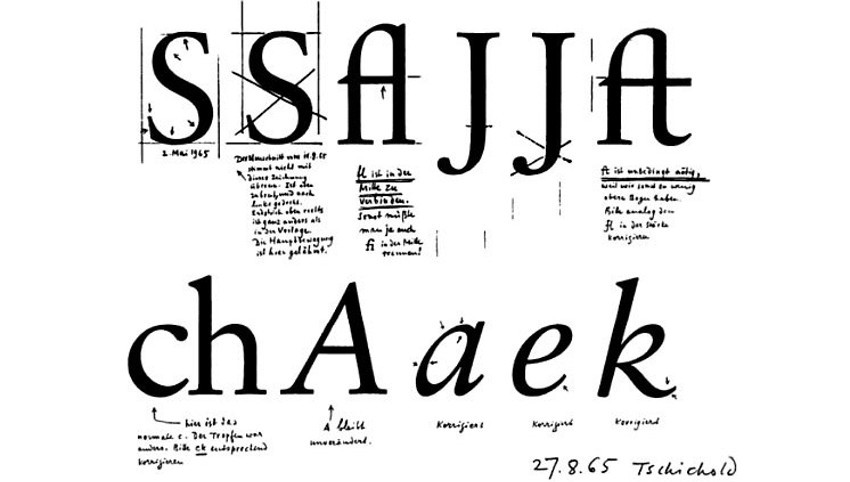 S S fl J J ft
2. Mai 1965
Der Umschnitt vom 14.8.65
stimmt nicht mit
dieser Zeichnung
überein. Ist oben
zusehr und nach
links gedreht.
Endstrich oben rechts
ist ganz anders als
in der Vorlage.
Die Hauptbewegung
ist hier gelähmt.
fl ist in der
Mitte zu
verbinden.
Sonst müßte
man ja auch
fi in der Mitte
trennen!
ft ist unbedingt nötig,
weil wir sonst zu wenig
obere Bogen haben.
Bitte analog dem
fl in der Stärke
korrigieren
ch A a e k
hier ist das
normale c. Der Tropfen war
anders. Bitte ck entsprechend
korrigieren
A bleibt
unverändert.
Korrigiert
Korrigiert
Korrigiert
27.8.65 Tschichold